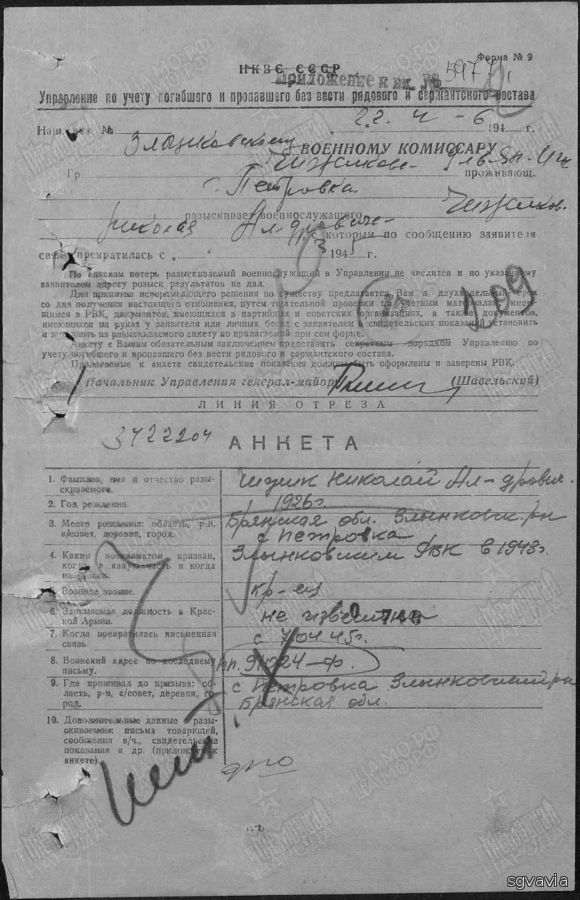 Форма № 9
НКВС СССР
Приложение к вх. №
Управление по учету погибшего и пропавшего без вести рядового и сержантского состава
Наш исх. № 194 г.
Злынковскому ВОЕННОМУ КОМИССАРУ
Гр. проживающ.
с. Петровка
разыскивает военнослужащего
Николая Ал-дровича с которым по сообщению заявителя
связь прекратилась с 194 г.
По спискам потерь разыскиваемый военнослужащий в Управлении не числится и по указанному
заявителем адресу розыск результатов не дал.
Для принятия исчерпывающего решения по существу предлагается Вам в двухнедельный срок
со дня получения настоящего отношения, путем тщательной проверки по учетным материалам, имею-
щимся в РВК, документов, имеющихся в партийных и советских организациях, а также документов,
имеющихся на руках у заявителя или личных бесед с заявителем и свидетельских показаний установить
и заполнить на разыскиваемого анкету по прилагаемой при сем форме.
Анкету с Вашим обязательным заключением представить секретным порядком Управлению по
учету погибшего и пропавшего без вести рядового и сержантского состава.
Прилагаемые к анкете свидетельские показания должны быть оформлены и заверены РВК.
Начальник Управления генерал-майор (Шавельский)
ЛИНИЯ ОТРЕЗА
3422204
АНКЕТА
1. Фамилия, имя и отчество разы-
скиваемого. Чижик Николай Ал-дрович.
2. Год рождения. 1926г
3. Место рождения: область, р-н, Брянская обл. Злынковск. р-н
с/совет, деревня, город. с Петровка
4. Каким военкоматом призван, Злынковским РВК в 1943г.
когда в какую часть и когда
направлен.
5. Военное звание. кр-ец
6. Занимаемая должность в Крас-
ной Армии. не известно
7. Когда прекратилась письменная
связь. с 7.04.45г.
8. Воинский адрес по последнему
письму. пп. 91024-ф.
9. Где проживал до призыва: об-
ласть, р-н, с/совет, деревня, го-
род. с Петровка Злынковский р-н
Брянская обл.
10. Дополнительные данные о разы-
скиваемом: письма товарищей,
сообщения в/ч., свидетельские
показания и др. (приложить к
анкете).
199
ПАМЯТЬ НАРОДА
ЦАМО.РФ
sgvavia